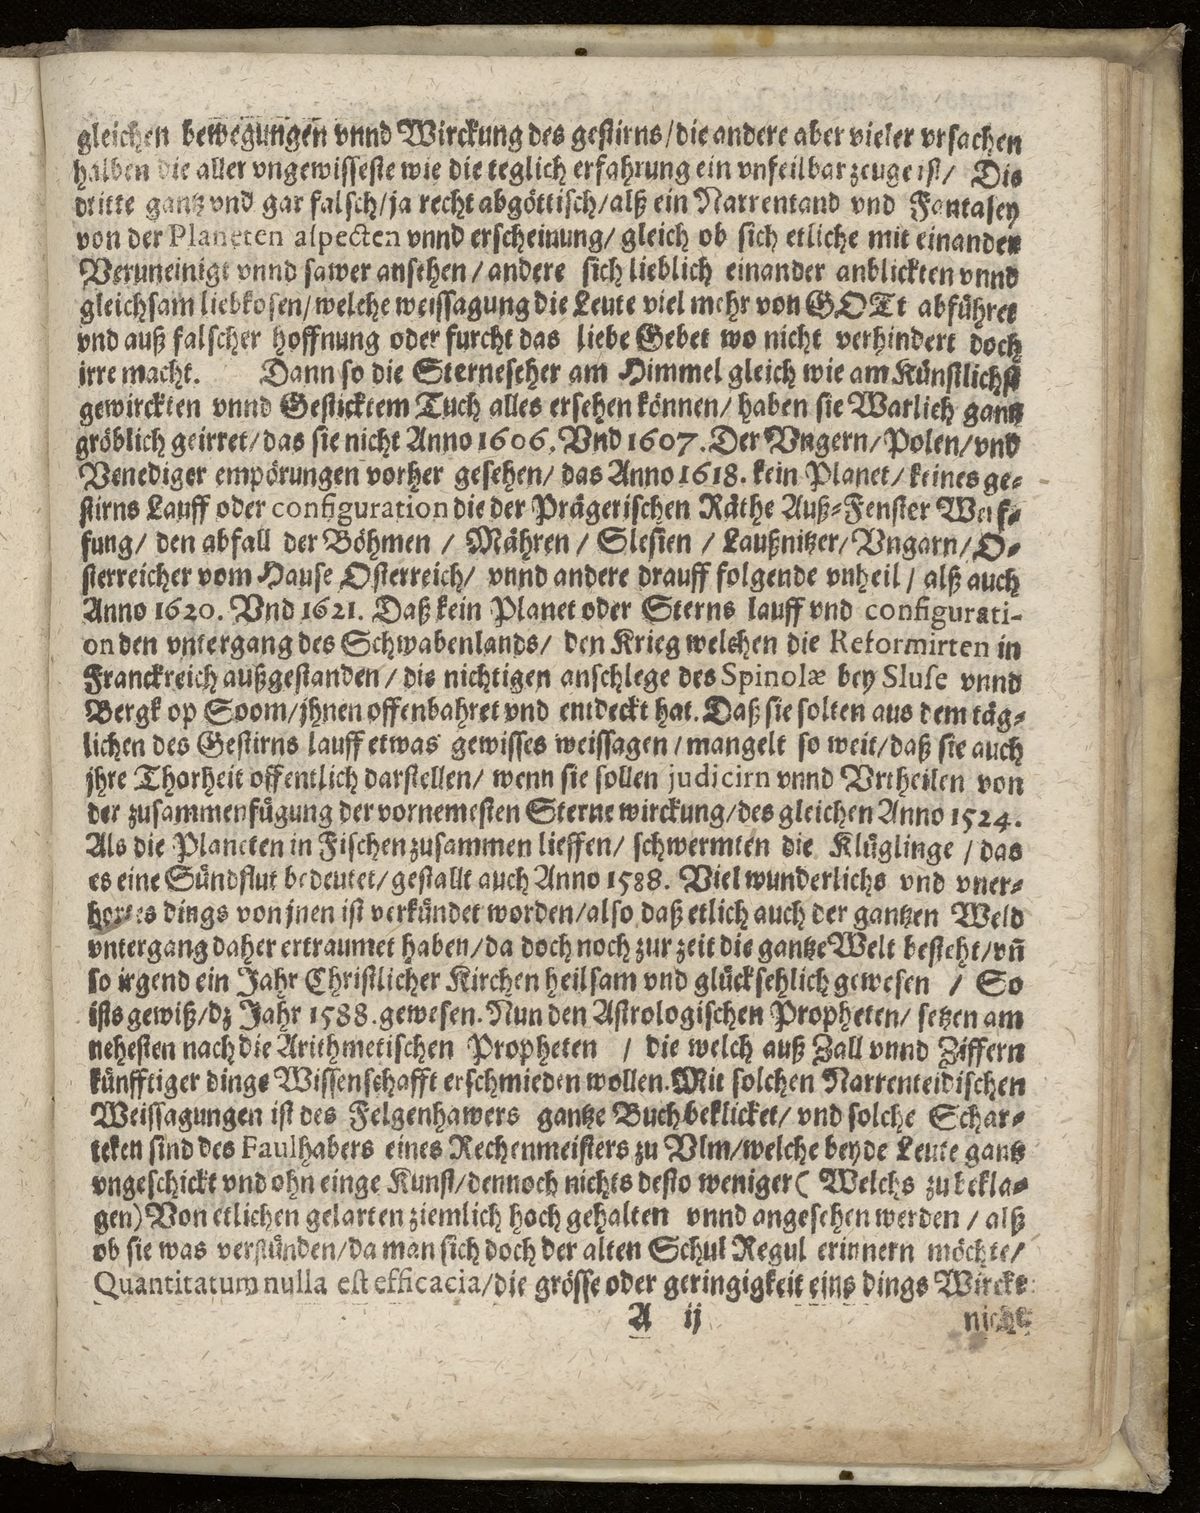 gleichen bewegungen vnnd Wirckung des gestirns/die andere aber vieler vrsachen
halben die aller vngewisseste wie die teglich erfahrung ein vnfeilbar zeuge ist/ Die
dritte gantz vnd gar falsch/ja recht abgöttisch/alß ein Narrentand vnd Fantasey
von der Planeten aspecten vnnd erscheinung/ gleich ob sich etliche mit einander
Veruneinigt vnnd sawer ansehen/andere sich lieblich einander anblickten vnnd
gleichsam liebkosen/welche weissagung die Leute viel mehr von GOTt abführet
vnd auß falscher hoffnung oder furcht das liebe Gebet wo nicht verhindert doch
irre macht. Dann so die Sterneseher am Himmel gleich wie am Künstlichst
gewirckten vnnd Gesticktem Tuch alles ersehen können/ haben sie Warlich gantz
gröblich geirret/das sie nicht Anno 1606. Vnd 1607. Der Vngern/Polen/vnd
Venediger empörungen vorher gesehen/ das Anno 1618. kein Planet/ keines ge-
stirns Lauff oder configuration die der Prägerischen Räthe Auß-Fenster Werf-
fung/ den abfall der Böhmen / Mähren / Slesien / Laußnitzer/ Vngarn/ O-
sterreicher vom Hause Osterreich/ vnnd andere drauff folgende vnheil / alß auch
Anno 1620. Vnd 1621. Daß kein Planet oder Sterns lauff vnd configurati-
on den vntergang des Schwabenlands/ den Krieg welchen die Reformirten in
Franckreich außgestanden / die nichtigen anschlege des Spinolæ bey Sluse vnnd
Bergk op Soom/jhnen offenbahret vnd entdeckt hat. Daß sie solten aus dem täg-
lichen des Gestirns lauff etwas gewisses weissagen/mangelt so weit/daß sie auch
jhre Thorheit offentlich darstellen/ wenn sie sollen judicirn vnnd Vrtheilen von
der zusammenfügung der vornemesten Sterne wirckung/des gleichen Anno 1524.
Als die Planeten in Fischen zusammen lieffen/ schwermten die Klüglinge / das
es eine Sündflut bedeutet/gestallt auch Anno 1588. Viel wunderlichs vnd vner-
hortes dings von jnen ist verkündet worden/also daß etlich auch der gantzen Weld
vntergang daher ertraumet haben/da doch noch zur zeit die gantze Welt besteht/vñ
so irgend ein Jahr Christlicher Kirchen heilsam vnd glücksehlich gewesen / So
ists gewiß/dz Jahr 1588. gewesen. Nun den Astrologischen Propheten/ setzen am
nehesten nach die Arithmetischen Propheten / die welch auß Zall vnnd Ziffern
künfftiger dinge Wissenschafft erschmieden wollen. Mit solchen Narrenteidischen
Weissagungen ist des Felgenhawers gantze Buch beklicket/ vnd solche Schar-
teken sind des Faulhabers eines Rechenmeisters zu Vlm/welche beyde Leute gantz
vngeschickt vnd ohn einge Kunst/dennoch nichts desto weniger ( Welchs zu bekla-
gen) Von etlichen gelarten ziemlich hoch gehalten vnnd angesehen werden / alß
ob sie was verstünden/da man sich doch der alten Schul Regul erinnern möchte/
Quantitatum nulla est efficacia/die grösse oder geringigkeit eins dings Wircke
A ij nicht